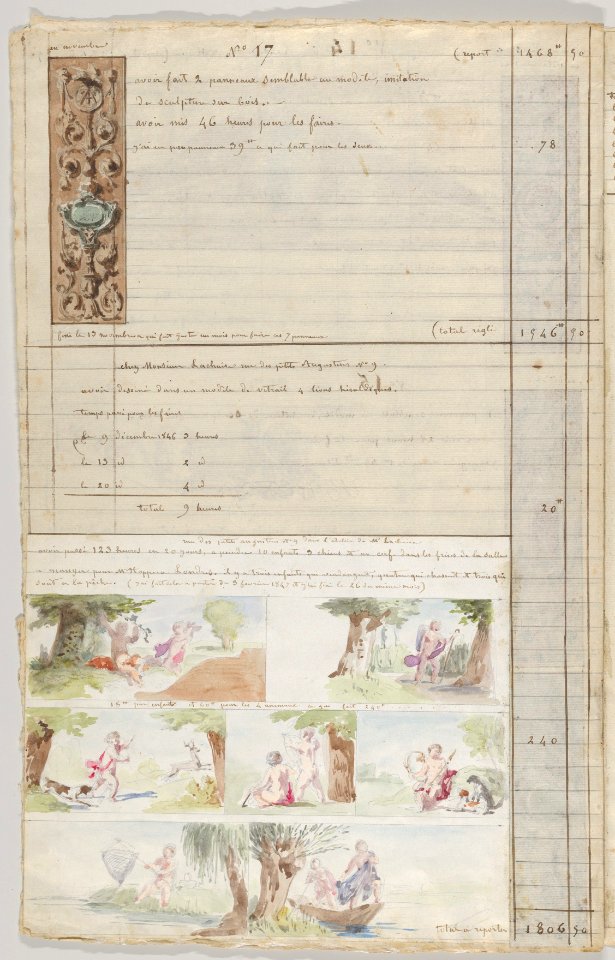 en novembre
No 17
(report 1468 # 50
avoir fait 2 panneaux semblable au modele, imitation
de sculpture sur bois.
avoir mis 46 heures pour les faires.
39 # ce qui fait pour les deux
78
fini le 13 novembre qui fait juste un mois pour faire ces 7 panneaux
(total regli 1546 # 50
chez Monsieur rue des petits Augustins No 9.
avoir dessiné dans un modele de vitrail 4 lions héraldiques.
temps passé pour les faires
le 9 décembre 1846 3 heures
le 13 id 2 id
le 20 id 4 id
total 9 heures
20 #
rue des petits augustins No 9 dans l'atelier de Mr
avoir passé 123 heures en 20 jours, a peindre 10 enfants 3 chiens et un cerf dans les frises de la salle
a manger pour Mr Londres. il y a trois enfants qui vendangent, quatre qui chassent et trois qui
sont a la pêche. (j'ai fait cela a partir du 3 fevrier 1847 et j'ai fini le 26 du meme mois)
18 # par enfants et 60 # pour les 4 animaux ce qui fait 240 #
240
total a reporter 1806 50